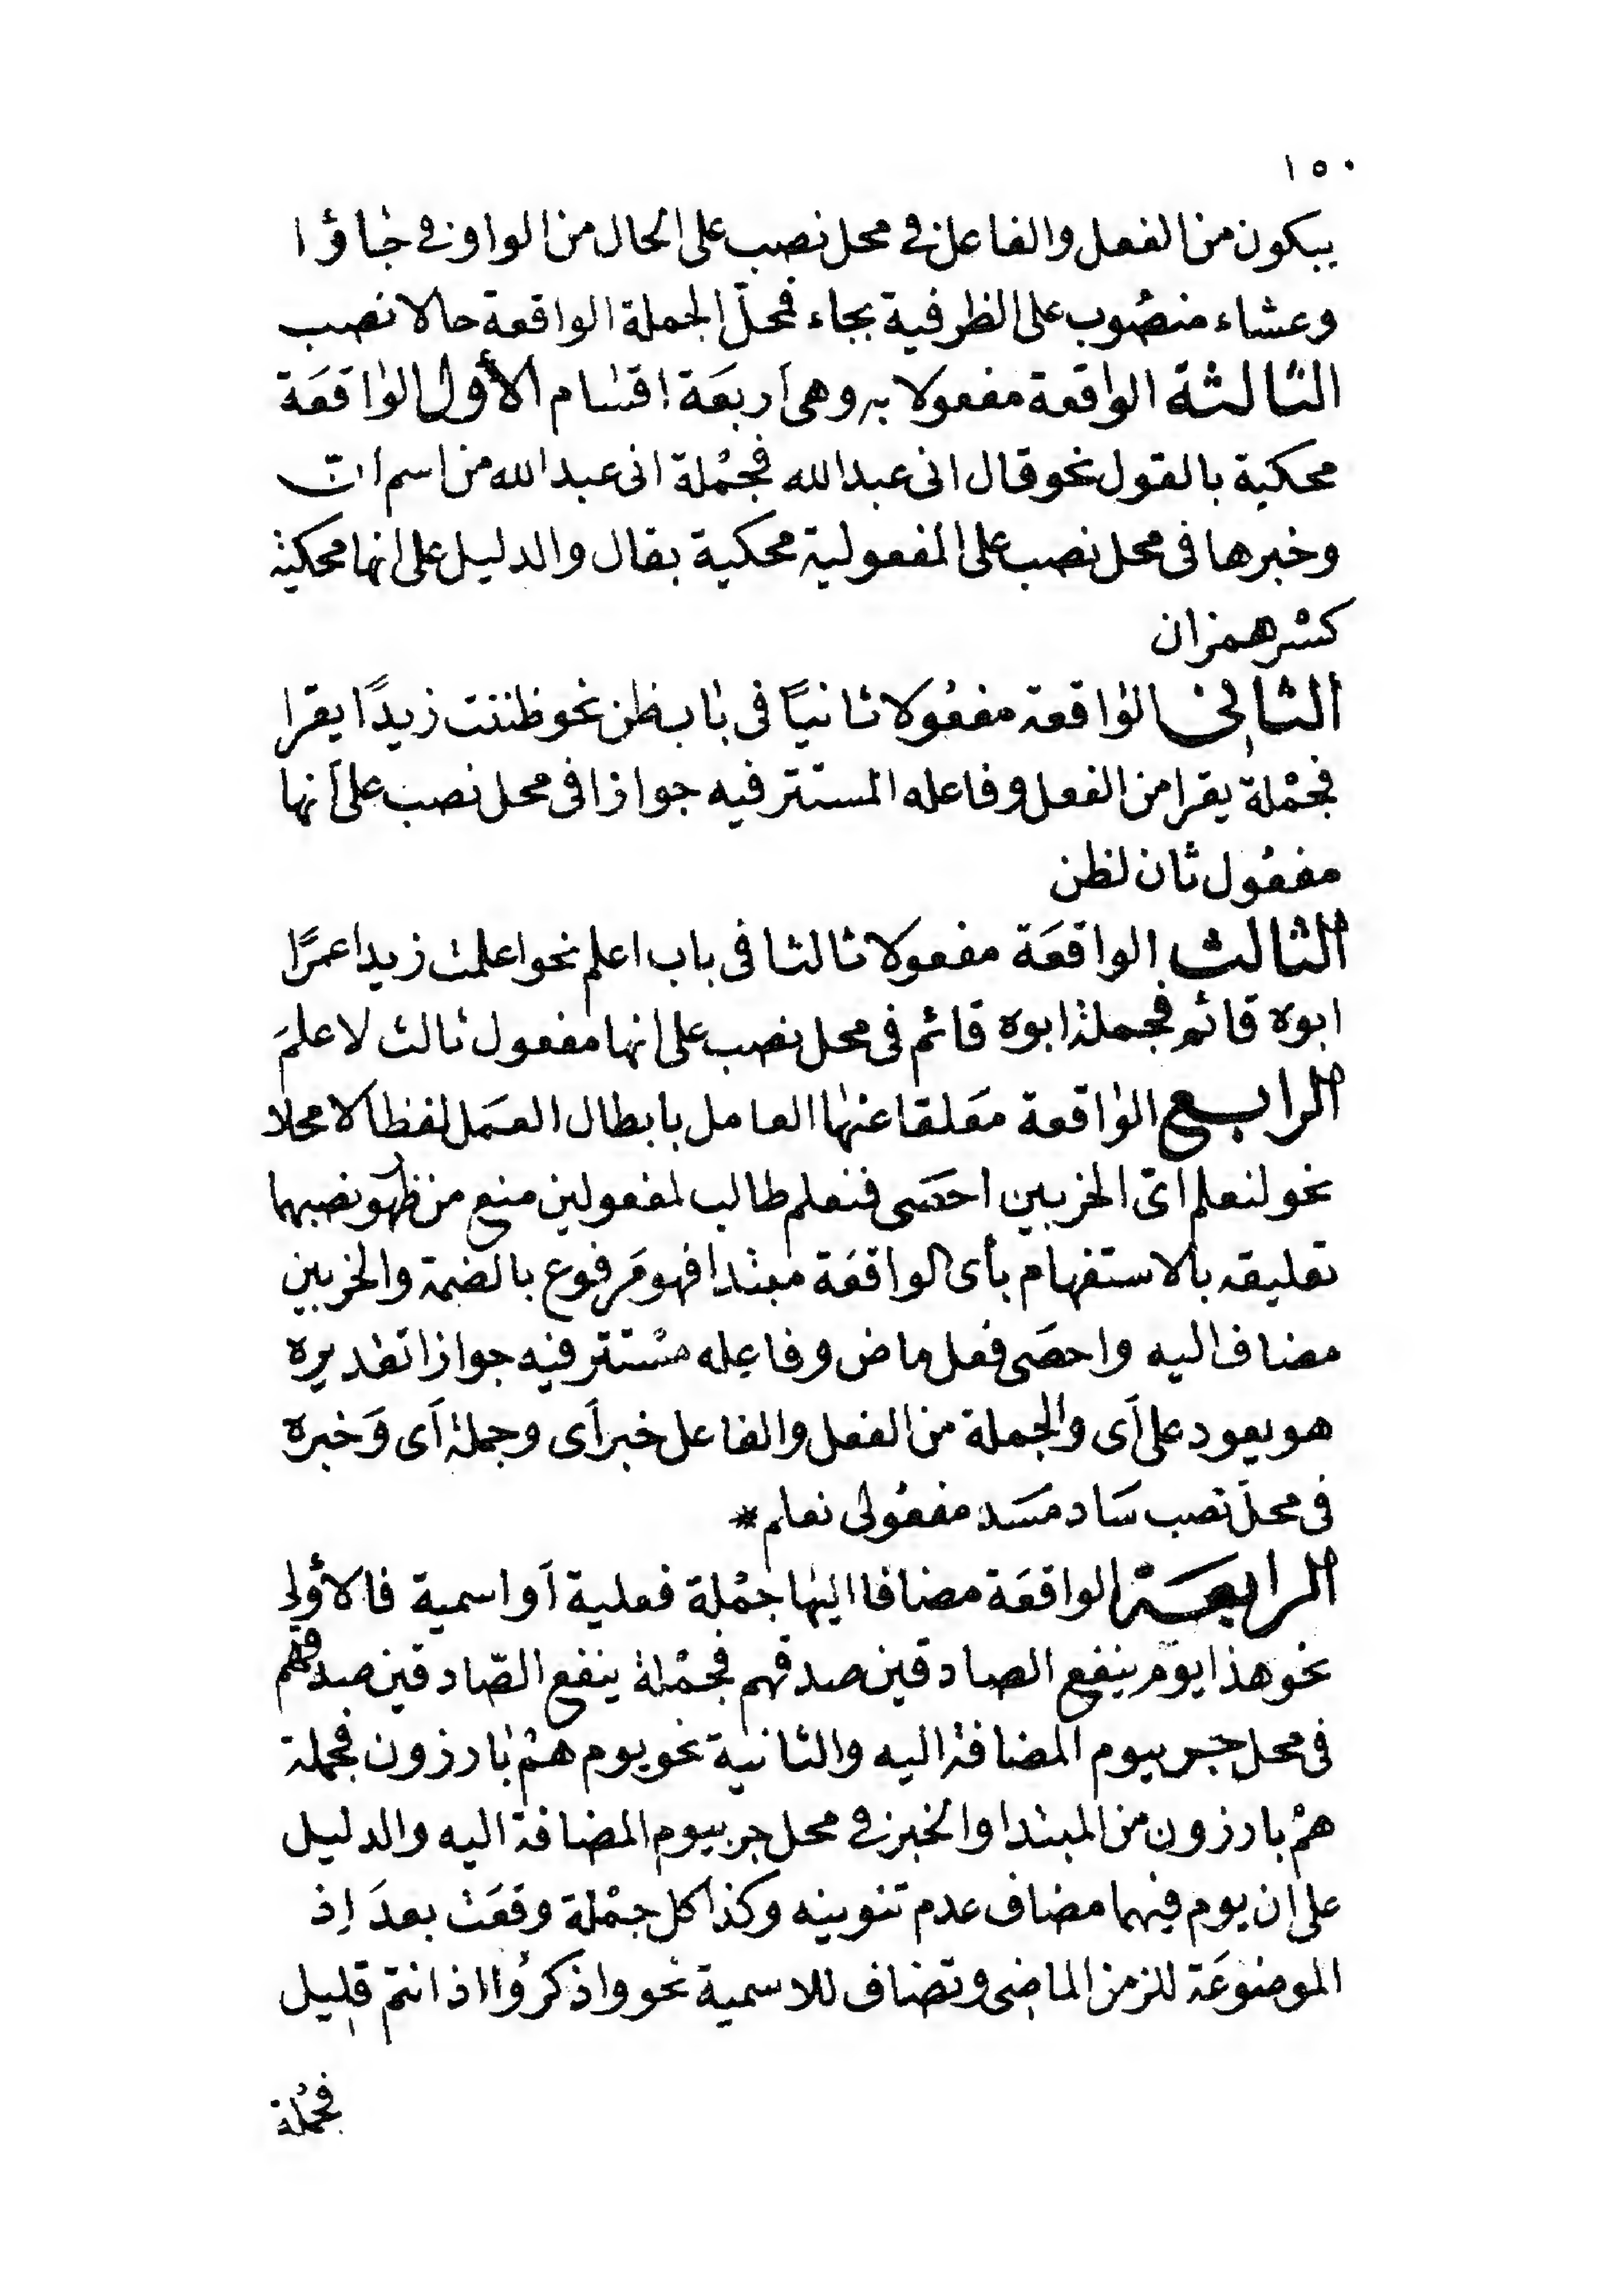 ١٥٠
يبكون من الفعل والفاعل فى محل نصب على الحال من الواو فى جاؤا
وعشاء منصُوب على الظرفية بجاء فمحلّ الجملة الواقعة حالا نصب
الثالثة الواقعة مفعولا به وهى أربعَة اقسام الأول الواقعَة
محكية بالقول نحو قال انى عبدالله فجمْلة انى عبدالله من اسم انّ
وخبرها فى محل نصب على المفعولية محكية بقال والدليل على انها محكية
كسر همز ان
الثانى الواقعة مفعُولا ثانيًا فى باب ظن نحو ظننت زيدًا يقرا
فجمْلة يقرا من الفعل وفاعله المستتر فيه جوازا فى محل نصب على أنها
مفعُول ثان لظن
الثالث الواقعَة مفعولا ثالثا فى باب اعلم نحو اعلمت زيدا عمرًا
ابوه قائم فجملة ابوه قائم فى محل نصب على انها مفعول ثالث لاعلمَ
الرابع الواقعة مَعلقا عنها العامل بابطال العمَل لفظا لا محلا
نحو لنعلم اىّ الحزبين احصَى فنعلم طالب لمفعولين منع من ظهور نصبهما
تعليقه بالاستفهام بأى الواقعَة مبتدا فهو مَرفوع بالضمة والحزبين
مضاف اليه واحصَى فعل ماض وفاعله مسْتتر فيه جوازا تقديره
هو يعود على أَى والجملة من الفعل والفاعل خبر أَى وجملة أَى وَخبره
فى محلّ نصب سَاد مَسَد مفعُولى نعلم *
الرابعة الواقعَة مضافا اليها جمْلة فعلية أَو اسمية فالأولى
نحو هذا يوم ينفع الصادقين صدقهم فجمْلة ينفع الصّادقين صدقهم
فى محل جر بيوم المضافة اليه والثانية نحو يوم همْ بارزون فجملة
همْ بارزون من المبتدا والخبر فى محل جر بيوم المضافة اليه والدليل
على ان يوم فيهما مضاف عدم تنوينه وكذا كل جمْلة وقعَت بعدَ إذ
الموضوعَة للزمن الماضى وتضاف للاسمية نحو واذكرُوا اذ انتم قليل
فجمْلة